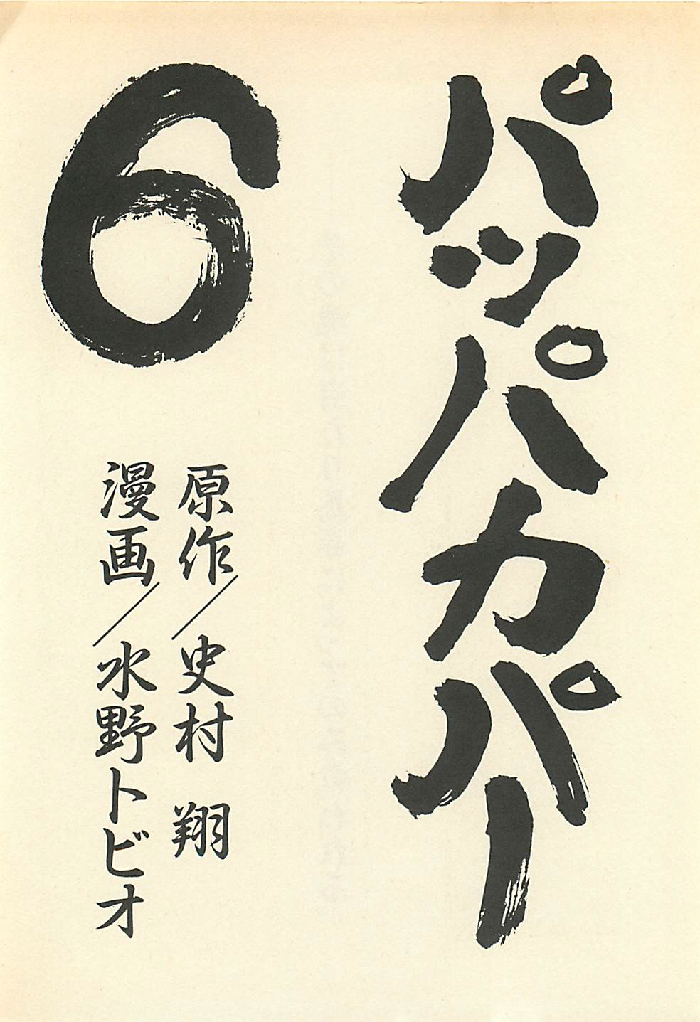 パッパカパー
6
原作／史村 翔
漫画／水野トビオ